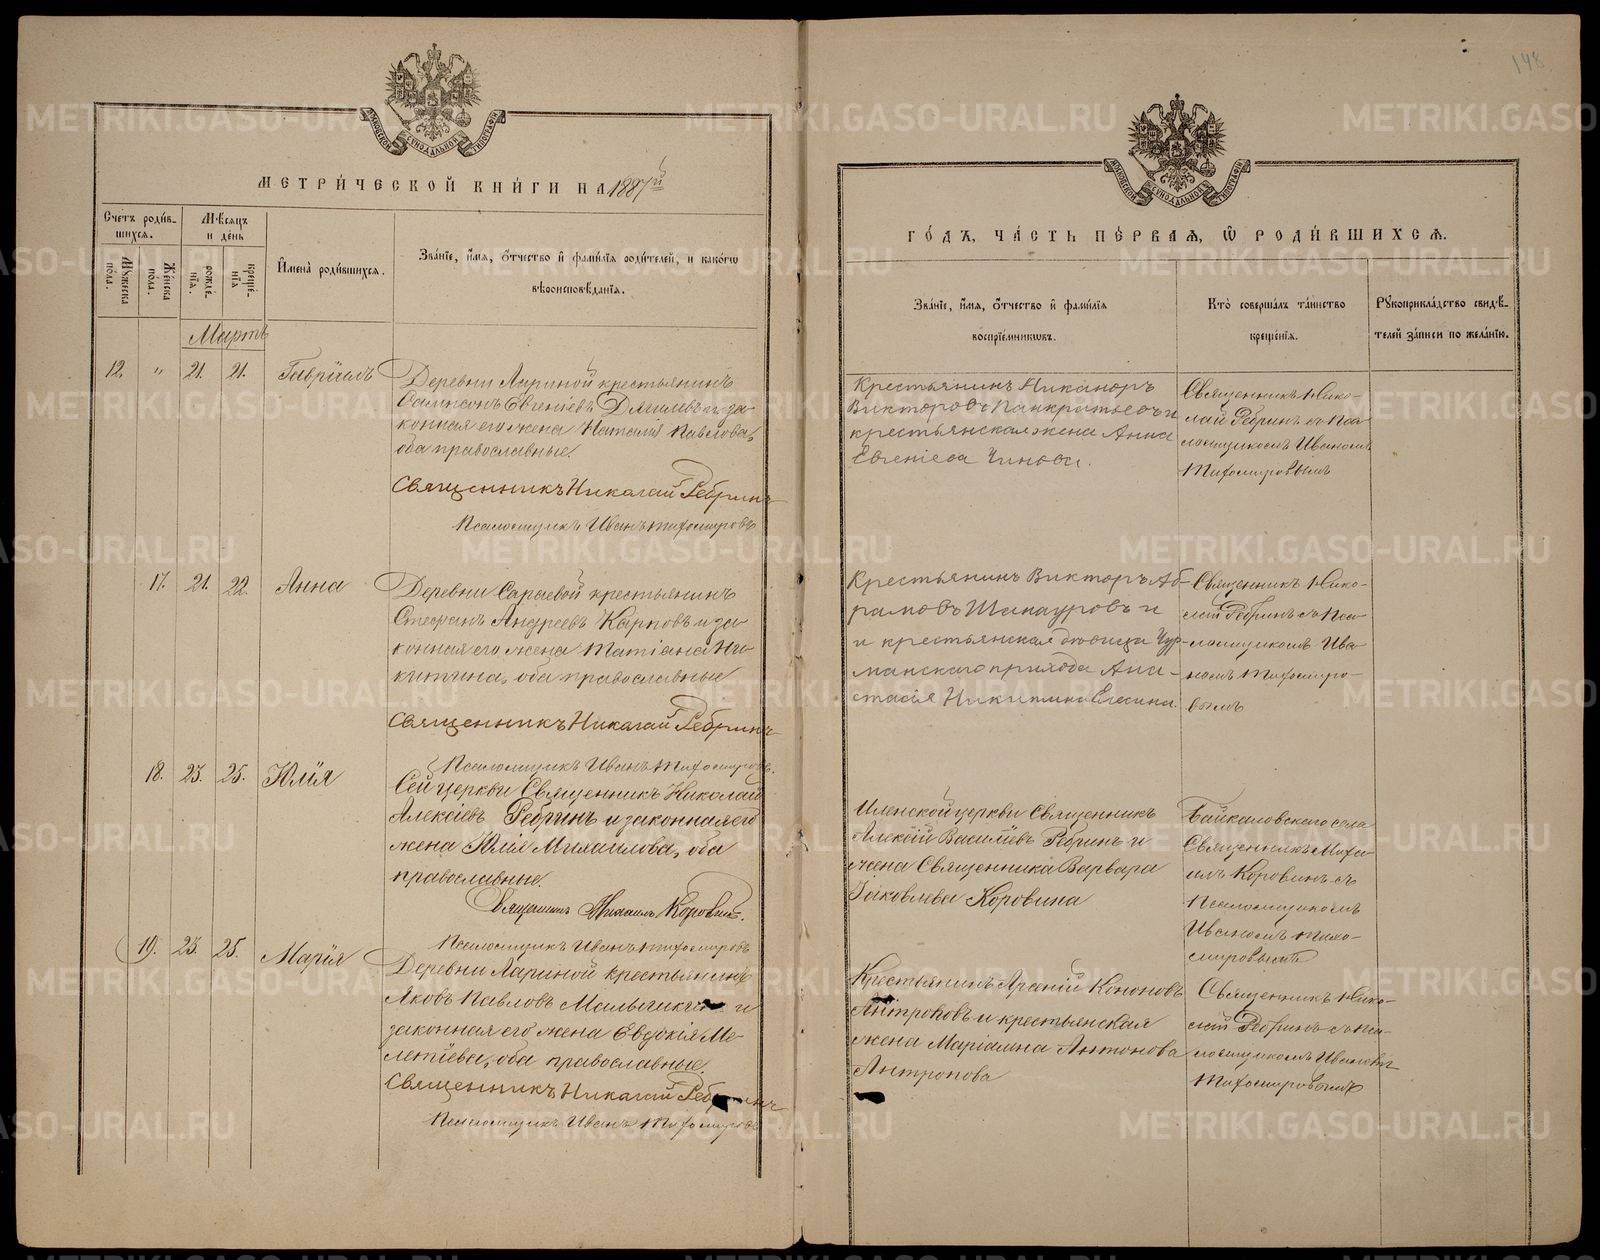 148
МЕТРИ́ЧЕСКОЙ КНИ́ГИ НА 1887й
Счетъ роди́в-
шихся.
Мѣ́сяцъ
и де́нь
Мꙋ́жеска
по́ла.
Же́нска
по́ла.
рожде́-
нїя.
креще́-
нїя.
И҆мена̀ роди́вшихся.
Зва́нїе, и҆́мя, ѻ҆́тчество и҆ фами́лїя роди́телей, и како́гѡ
вѣроисповѣ́данїя.
Мартъ
12. „ 21. 21. Гавріилъ
Деревни Лариной крестьянинъ
Сампсонъ Евгеніевъ и за-
конная его жена Наталія Павлова,
оба православные.
Священникъ Николай Ребринъ
Псаломщикъ Иванъ Тихомировъ
17. 21. 22. Анна
Деревни Сараевой крестьянинъ
Стефанъ Андреевъ Карповъ и за-
конная его жена Татіана Ни-
китина, оба православные
Священникъ Николай Ребринъ
Псаломщикъ Иванъ Тихомировъ.
18. 23. 25. Юлія
Сей церкви Священникъ Николай
Алексіевъ Ребринъ и законная его
жена Юлія Михаилова, оба
православные.
Священникъ Михаилъ Коровинъ.
Псаломщикъ Иванъ Тихомировъ
19. 23. 25. Марія
Деревни Лариной крестьянинъ
Яковъ Павловъ и
законная его жена Евдокія Ме-
летіева, оба православные.
Священникъ Николай Ребринъ
Псаломщикъ Иванъ Тихомировъ
ГО́ДЪ, ЧА́СТЬ ПЕ́РВАЯ, Ѡ҆ РОДИ́ВШИХСЯ.
Зва́нїе, и҆́мя, ѻ҆́тчество и҆ фами́лїя
воспрїе́мникѡвъ.
Кто̀ соверша́лъ та́инство
креще́нїя.
Рꙋкоприкла́дство свидѣ́-
телей за́писи по жела́нїю.
Крестьянинъ Никаноръ
Викторовъ Панкратьевъ и
крестьянская жена Анна
Евгеніева
Священникъ Нико-
лай Ребринъ съ Пса-
ломщикомъ Иваномъ
Тихомировымъ
Крестьянинъ Викторъ Аб-
рамовъ и
и крестьянская дѣвица
манскаго прихода Ана-
стасія Никитина
Священникъ Нико-
лай Ребринъ съ Пса-
ломщикомъ Ива-
номъ Тихомиро-
вымъ
Иленской церкви Священникъ
Алексій Василіевъ Ребринъ и
жена Священника Варвара
Іаковлева Коровина
Байкаловскаго села
Священникъ Миха-
илъ Коровинъ съ
Псаломщикомъ
Иваномъ Тихо-
мировымъ
Крестьянинъ Арсеній Кононовъ
Антроповъ и крестьянская
жена Маріамна Антонова
Антропова
Священникъ Нико-
лай Ребринъ съ Пса-
ломщикомъ Иваномъ
Тихомировымъ
METRIKI.GASO-URAL.RU